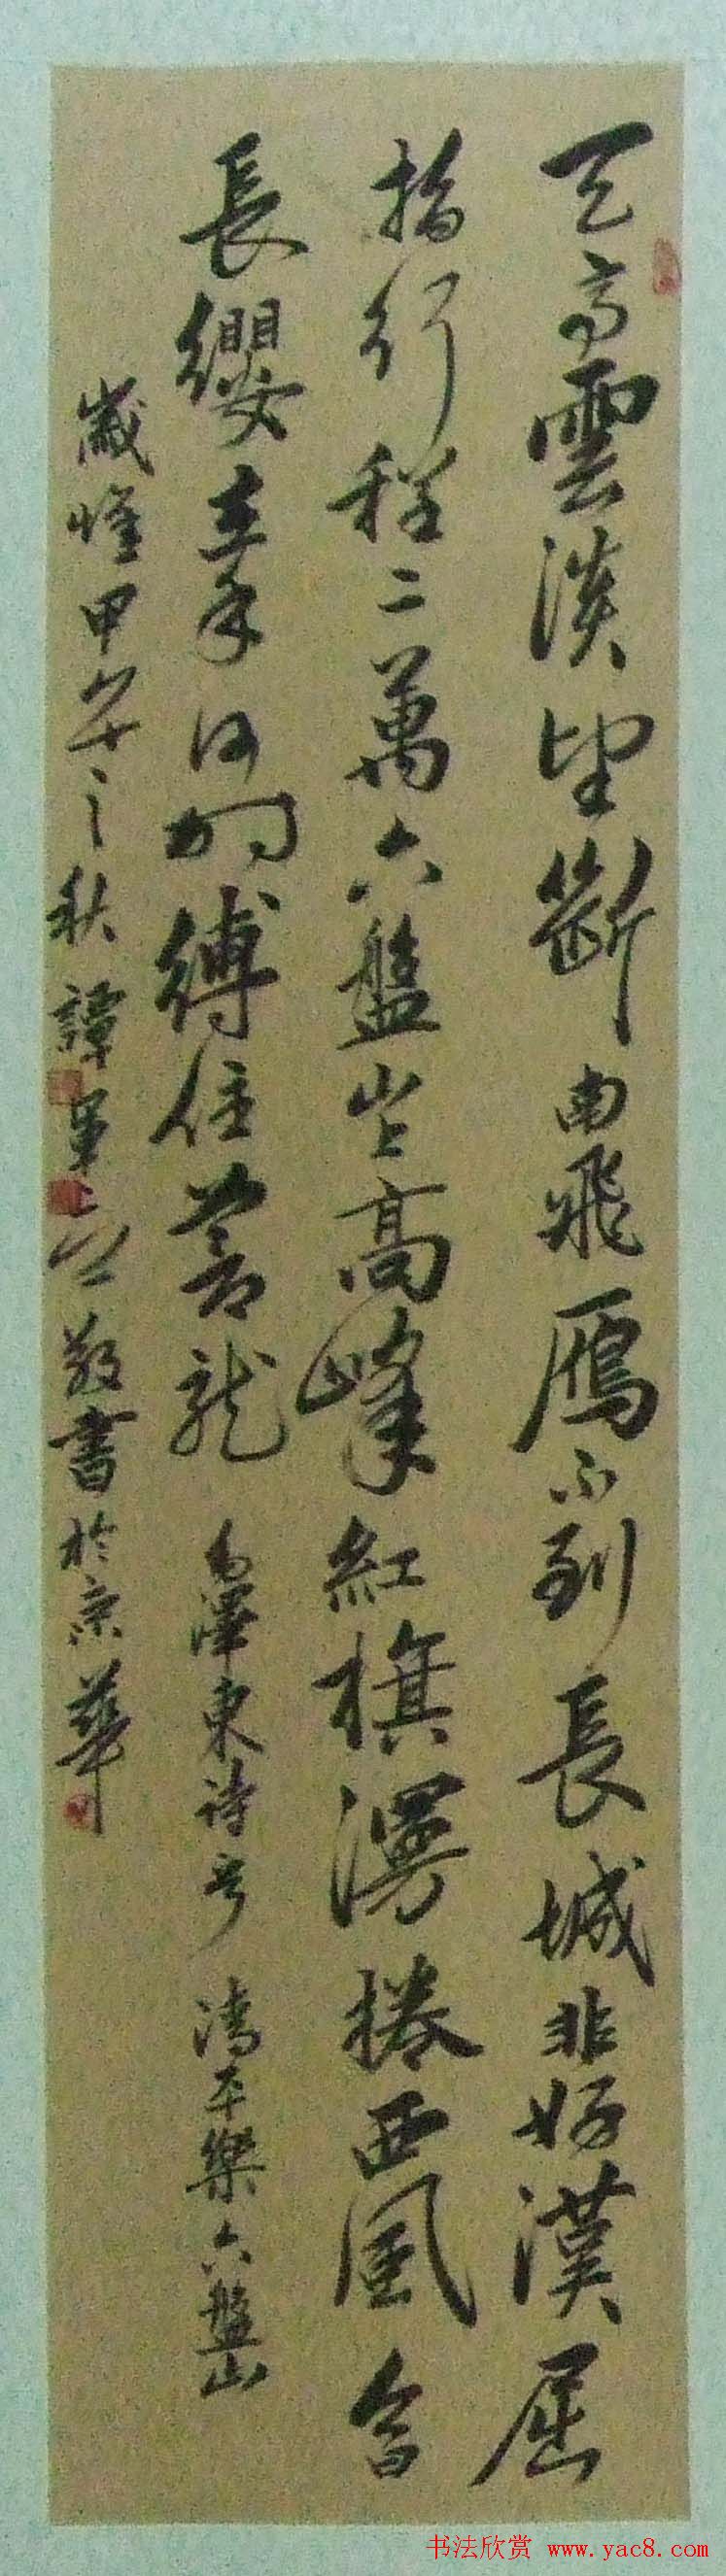 天高雲淡望斷南飛雁不到長城非好漢屈
指行程二萬六盤山上高峰紅旗漫捲西風今日
長纓在手何時縛住蒼龍 毛澤東詩 清平樂六盤山
歲惟甲午之秋 譚軍 敬書於京華
书法欣赏 www.yac8.com